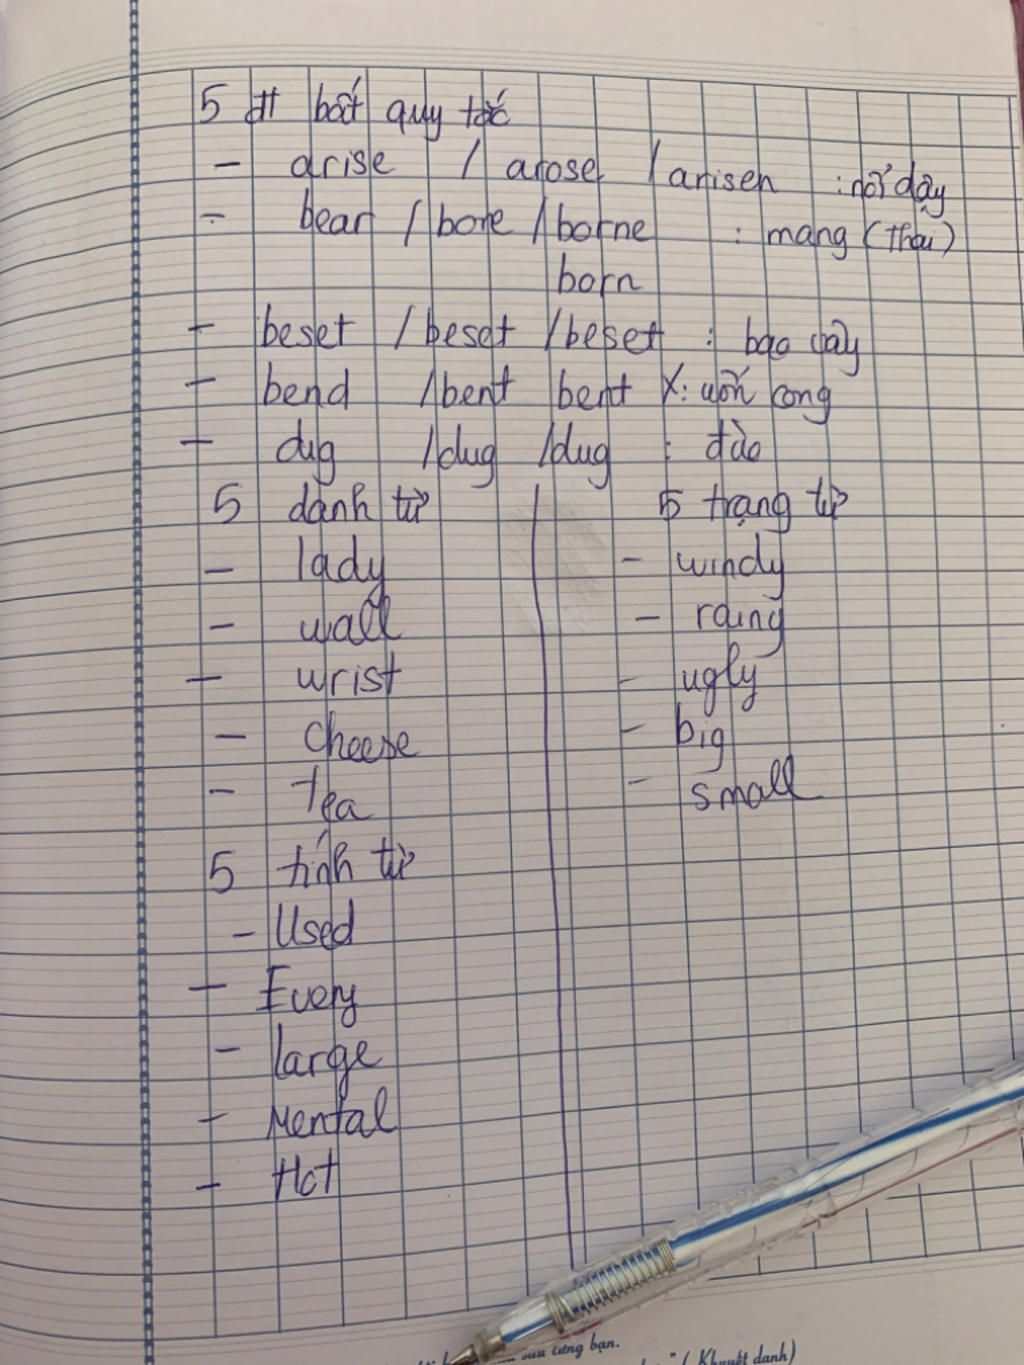 5 đt bất quy tắc
- arise / arose / arisen : nổi dậy
- bear / bore / borne : mang (thai)
born
- beset / beset / beset : bao vây
- bend / bent bent : uốn cong
- dig / dug / dug : đào
5 danh từ
- lady
- wall
- wrist
- cheese
- tea
5 trạng từ
- windy
- rainy
- ugly
- big
- small
5 tính từ
- Used
- Every
- large
- Mental
- Hot
của từng bạn.
" ( Khuyết danh)